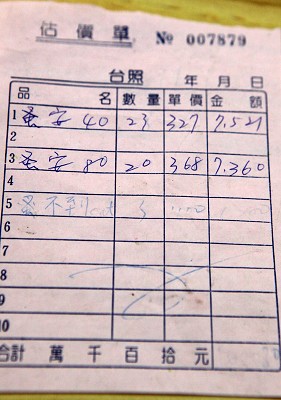 估價單 № 007879
台照 年 月 日
品名 數量 單價 金額
1 蚤安 40 23 327 7.521
2
3 蚤安 80 20 368 7.360
4
5 蚤不到
6
7
8
9
10
合計 萬 千 百 拾 元